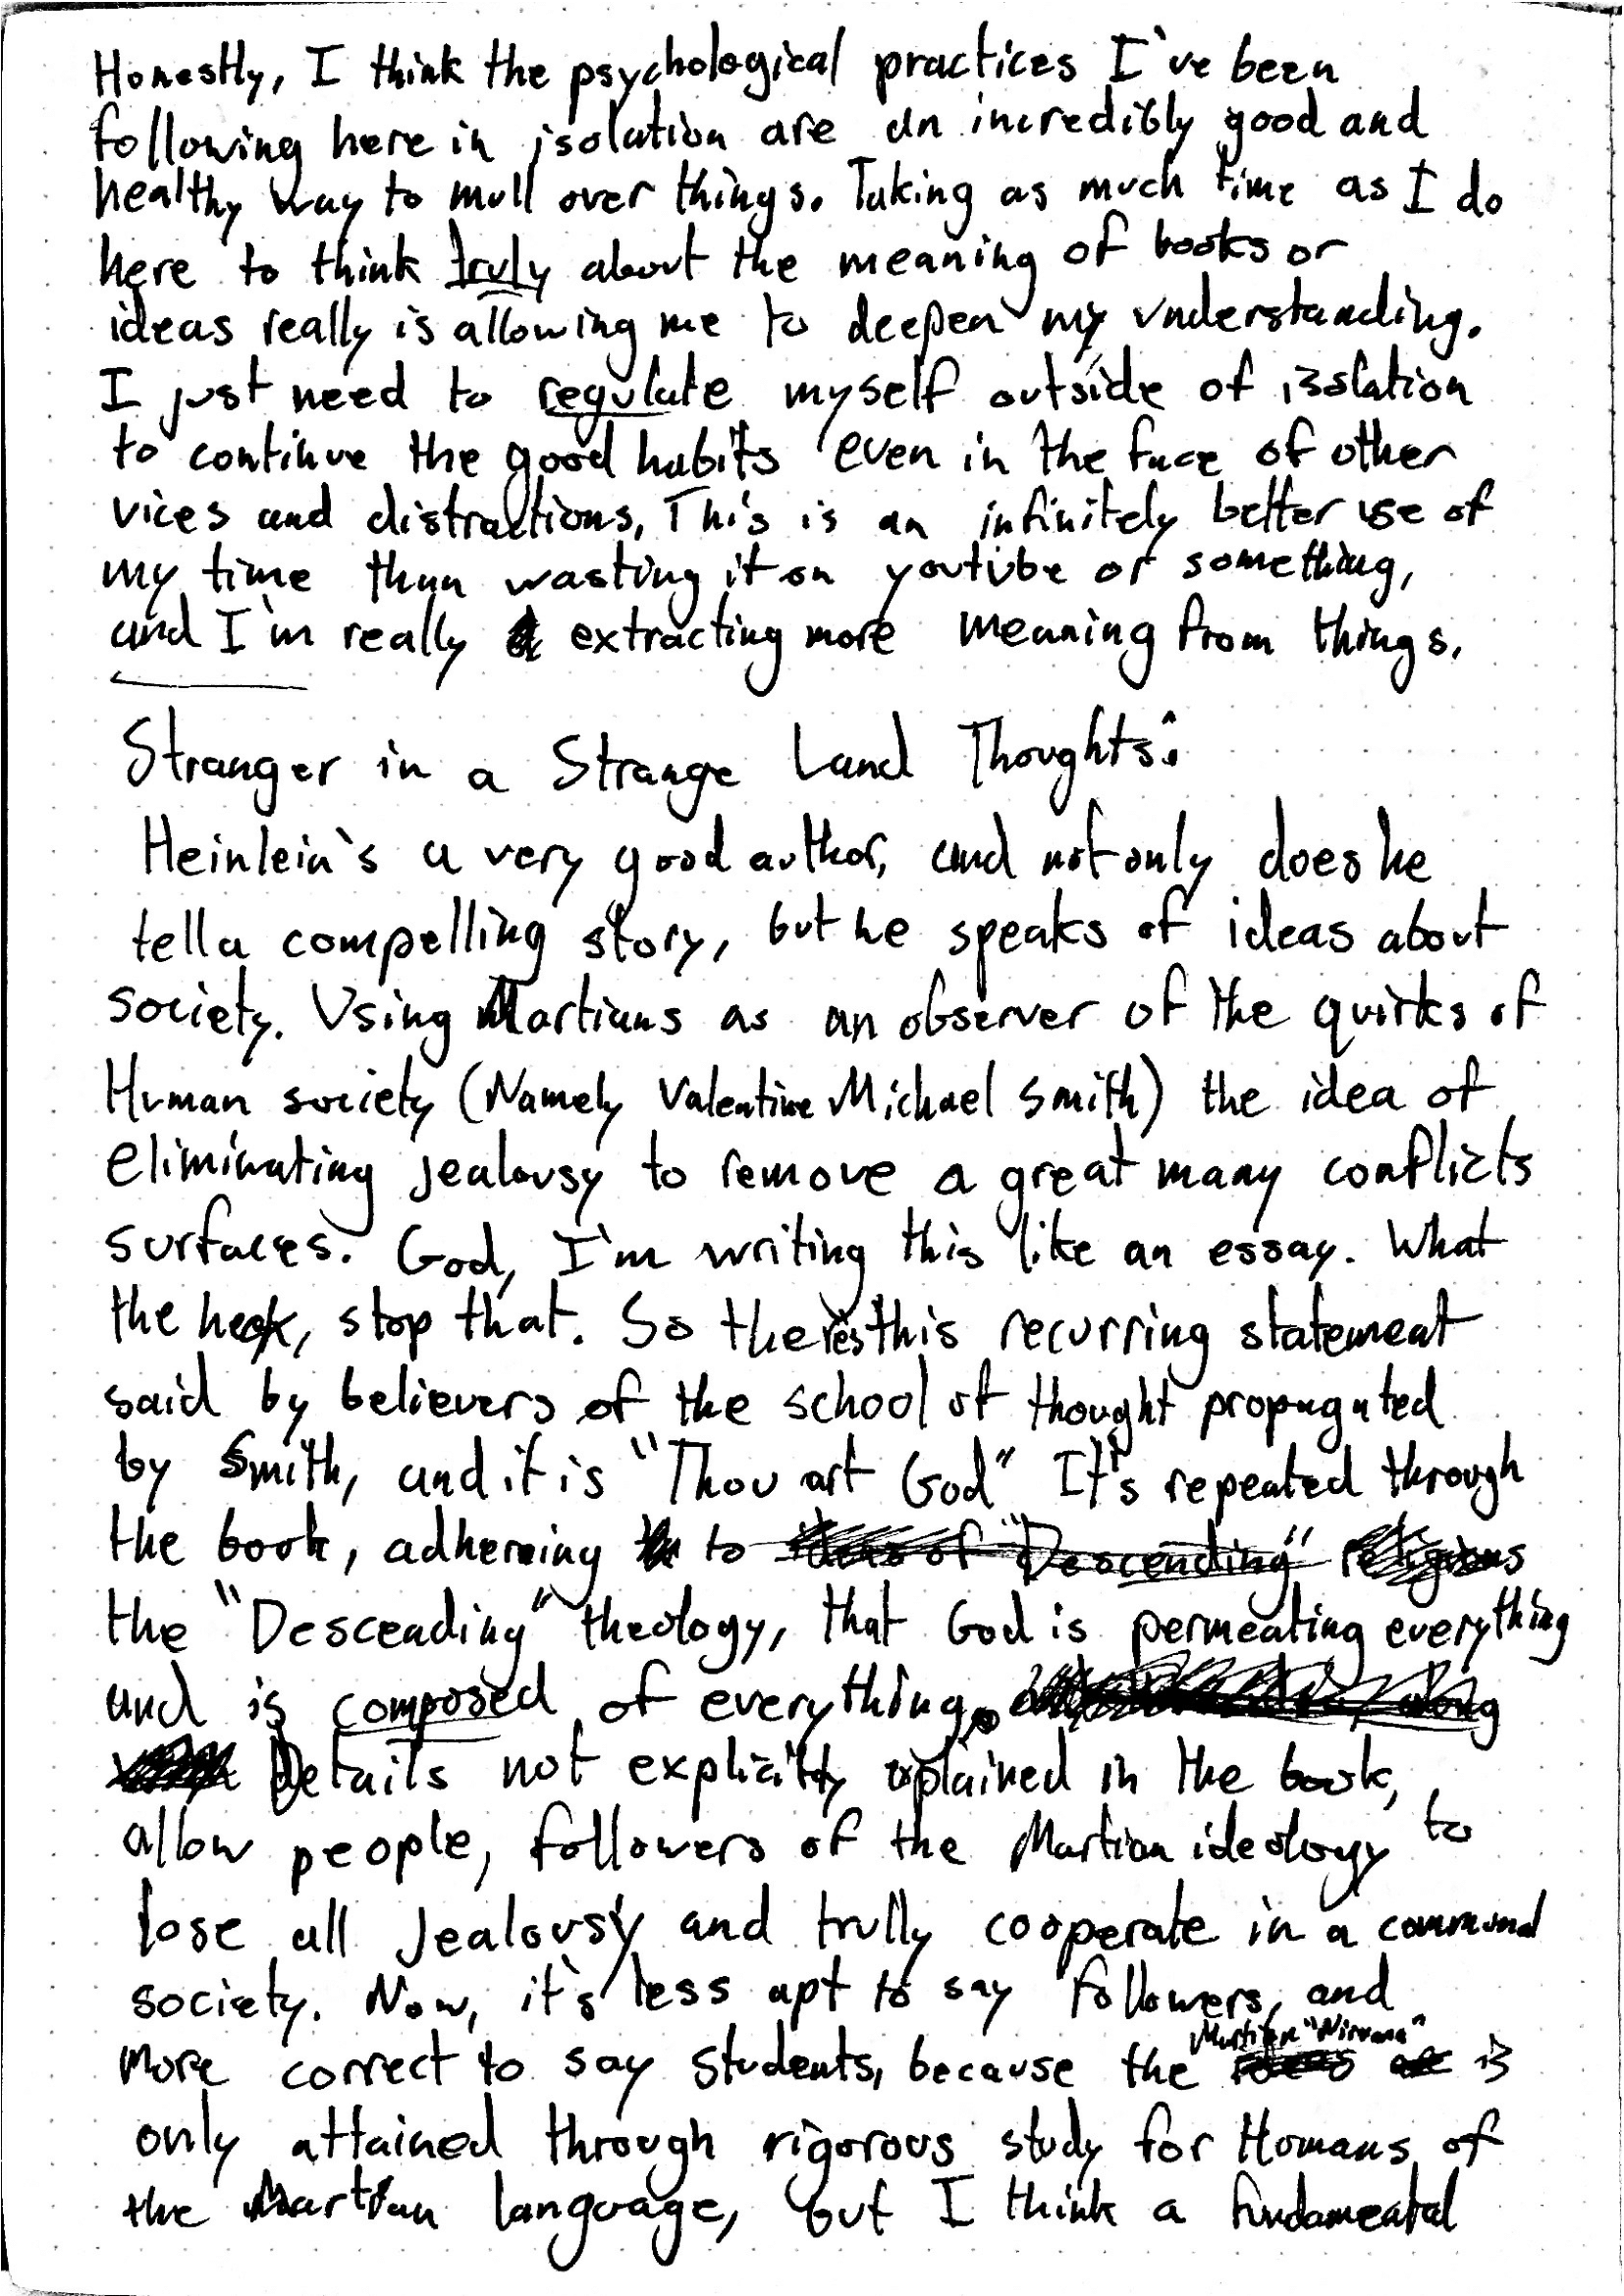 Honestly, I think the psychological practices I've been
following here in isolation are an incredibly good and
healthy way to mull over things. Taking as much time as I do
here to think truly about the meaning of books or
ideas really is allowing me to deepen my understanding.
I just need to regulate myself outside of isolation
to continue the good habits even in the face of other
vices and distractions, This is an infinitely better use of
my time than wasting it on youtube or something,
and I'm really extracting more meaning from things.
Stranger in a Strange Land Thoughts:
Heinlein's a very good author, and not only does he
tell a compelling story, but he speaks of ideas about
society. Using Martians as an observer of the quirks of
Human society (Namely Valentine Michael Smith) the idea of
eliminating jealousy to remove a great many conflicts
surfaces. God, I'm writing this like an essay. What
the heck, stop that. So there's this recurring statement
said by believers of the school of thought propagated
by Smith, and it is "Thou art God" It's repeated through
the book, adhereing to ideas of "Descending" religions
the "Descending" theology, that God is permeating everything
and is composed of everything. along
Details not explicitly explained in the book,
allow people, followers of the Martian ideology to
lose all jealousy and trully cooperate in a communal
society. Now, it's less apt to say followers, and
more correct to say students, because the Martian "Nirvana" is
only attained through rigorous study for Humans of
the Martian language, but I think a fundamental